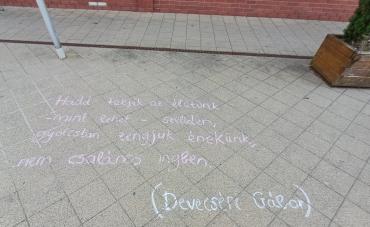 - Hadd teljék az életünk
- mint lehet - szelíden,
nyolcstan zengjük énekünk,
nem csalános ingben.
(Devecseri Gábor)